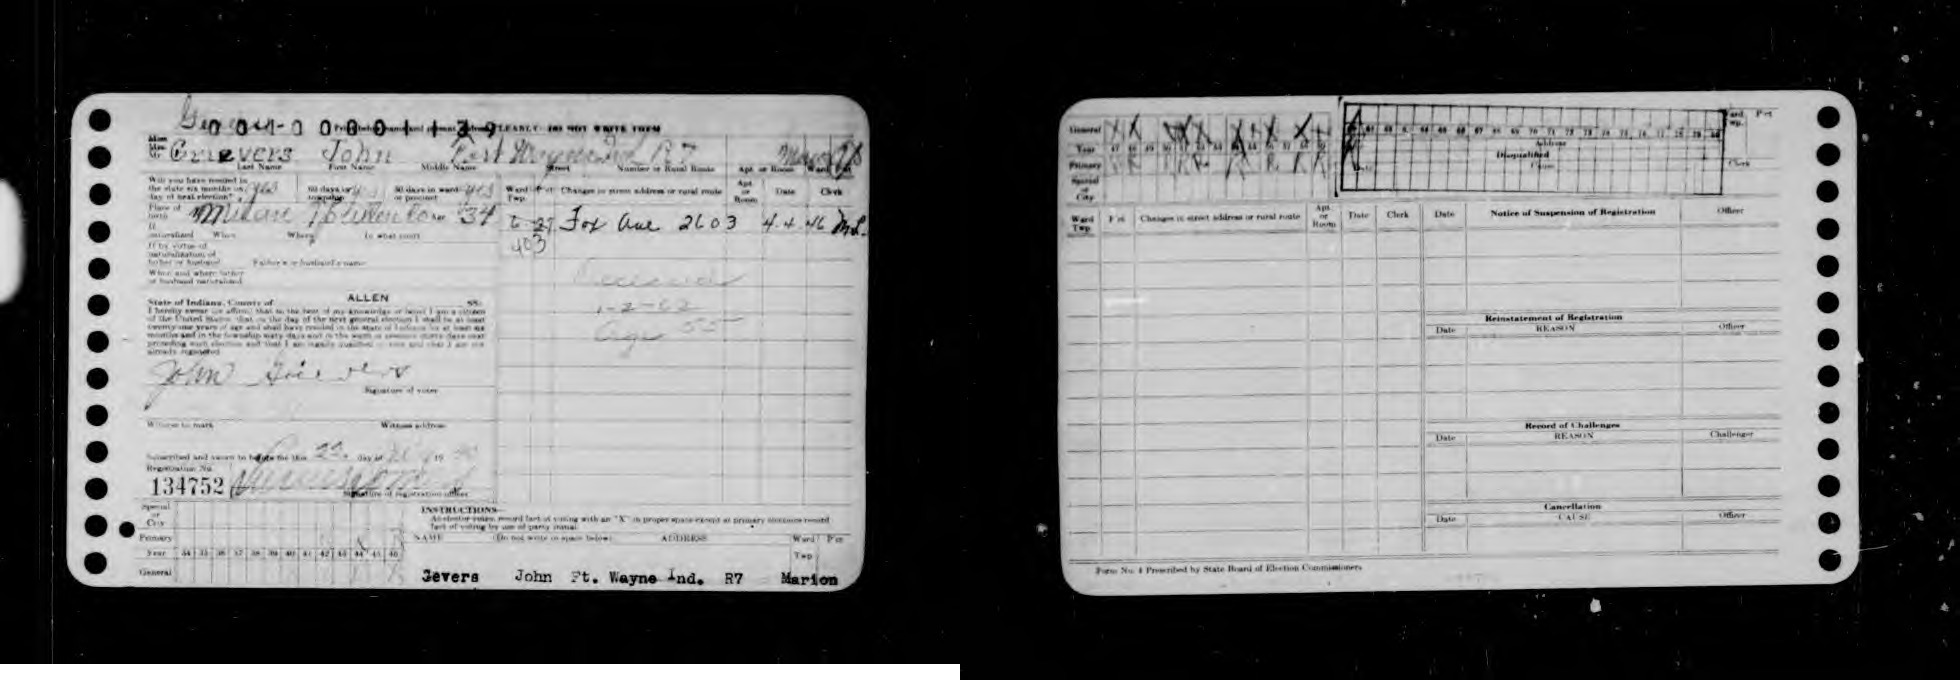 Gevers
0 0 1 - 0 0 0 0 1 1 3 9
CLEARLY DO NOT WRITE THEM
Grievers John Fort Wayne Ind. R7 Marion
Last Name First Name Middle Name Street Number or Rural Route Apt. or Room Ward Pct
Will you have resided in the state six months on day of next election? yes 60 days in township yes 30 days in ward or precinct yes
Place of birth Age 34
If naturalized When Where In what court
If by virtue of naturalization of father or husband Father's or husband's name
When and where father or husband naturalized
State of Indiana, County of ALLEN SS:
I hereby swear (or affirm) that to the best of my knowledge or belief I am a citizen
of the United States, that on the day of the next general election I shall be at least
twenty-one years of age and shall have resided in the state of Indiana for at least six
months and in the township sixty days and in the ward or precinct thirty days next
preceding such election and that I am legally qualified to vote and that I am not
already registered
John Grievers
Signature of voter
Witness to mark Witness address
Subscribed and sworn to before me this 22 day of 19 40
Registration No.
134752
Signature of registration officer
Ward Twp. Pct Changes in street address or rural route Apt. or Room Date Clerk
6 27 Fox Ave 2603 4-4-46 M.L.
403
Deceased
1-2-62
Age 55
Special or City
Primary
Year 34 35 36 37 38 39 40 41 42 43 44 45 46
General
INSTRUCTIONS—
An elector votes record fact of voting with an "X" in proper space except at primary elections record
fact of voting by use of party initial.
NAME (Do not write in space below) ADDRESS Ward Twp Pct
Gevers John Ft. Wayne Ind. R7 Marion
General
Year 47 48 49 50
Primary
Special or City
Address
Disqualified
Cause
Ward Twp. Pct
Clerk
Ward Twp. Pct Changes in street address or rural route Apt. or Room Date Clerk
Date Notice of Suspension of Registration Officer
Reinstatement of Registration
Date REASON Officer
Record of Challenges
Date REASON Challenger
Cancellation
Date CAUSE Officer
Form No. 4 Prescribed by State Board of Election Commissioners